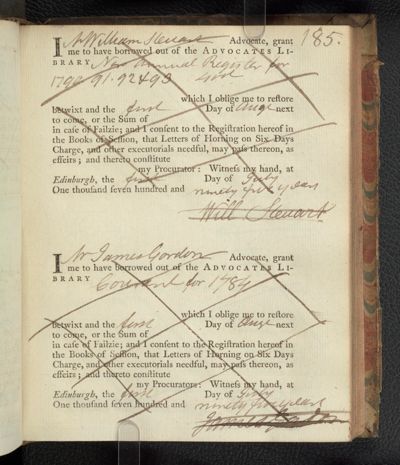 185.
I Mr William Steuart Advocate, grant
me to have borrowed out of the ADVOCATES LI-
BRARY New Annual Register for
1790 91. 92 & 93
which I oblige me to reſtore
betwixt and the first Day of Augt next
to come, or the Sum of
in caſe of Failzie; and I conſent to the Regiſtration hereof in
the Books of Seſſion, that Letters of Horning on Six Days
Charge, and other executorials needful, may paſs thereon, as
effeirs; and thereto conſtitute
my Procurator: Witneſs my hand, at
Edinburgh, the first Day of July
One thouſand ſeven hundred and ninety five years
Will Steuart
I Mr James Gordon Advocate, grant
me to have borrowed out of the ADVOCATES LI-
BRARY Courant for 1784
which I oblige me to reſtore
betwixt and the first Day of Augt next
to come, or the Sum of
in caſe of Failzie; and I conſent to the Regiſtration hereof in
the Books of Seſſion, that Letters of Horning on Six Days
Charge, and other executorials needful, may paſs thereon, as
effeirs; and thereto conſtitute
my Procurator: Witneſs my hand, at
Edinburgh, the first Day of July
One thouſand ſeven hundred and ninety five years
James Gordon